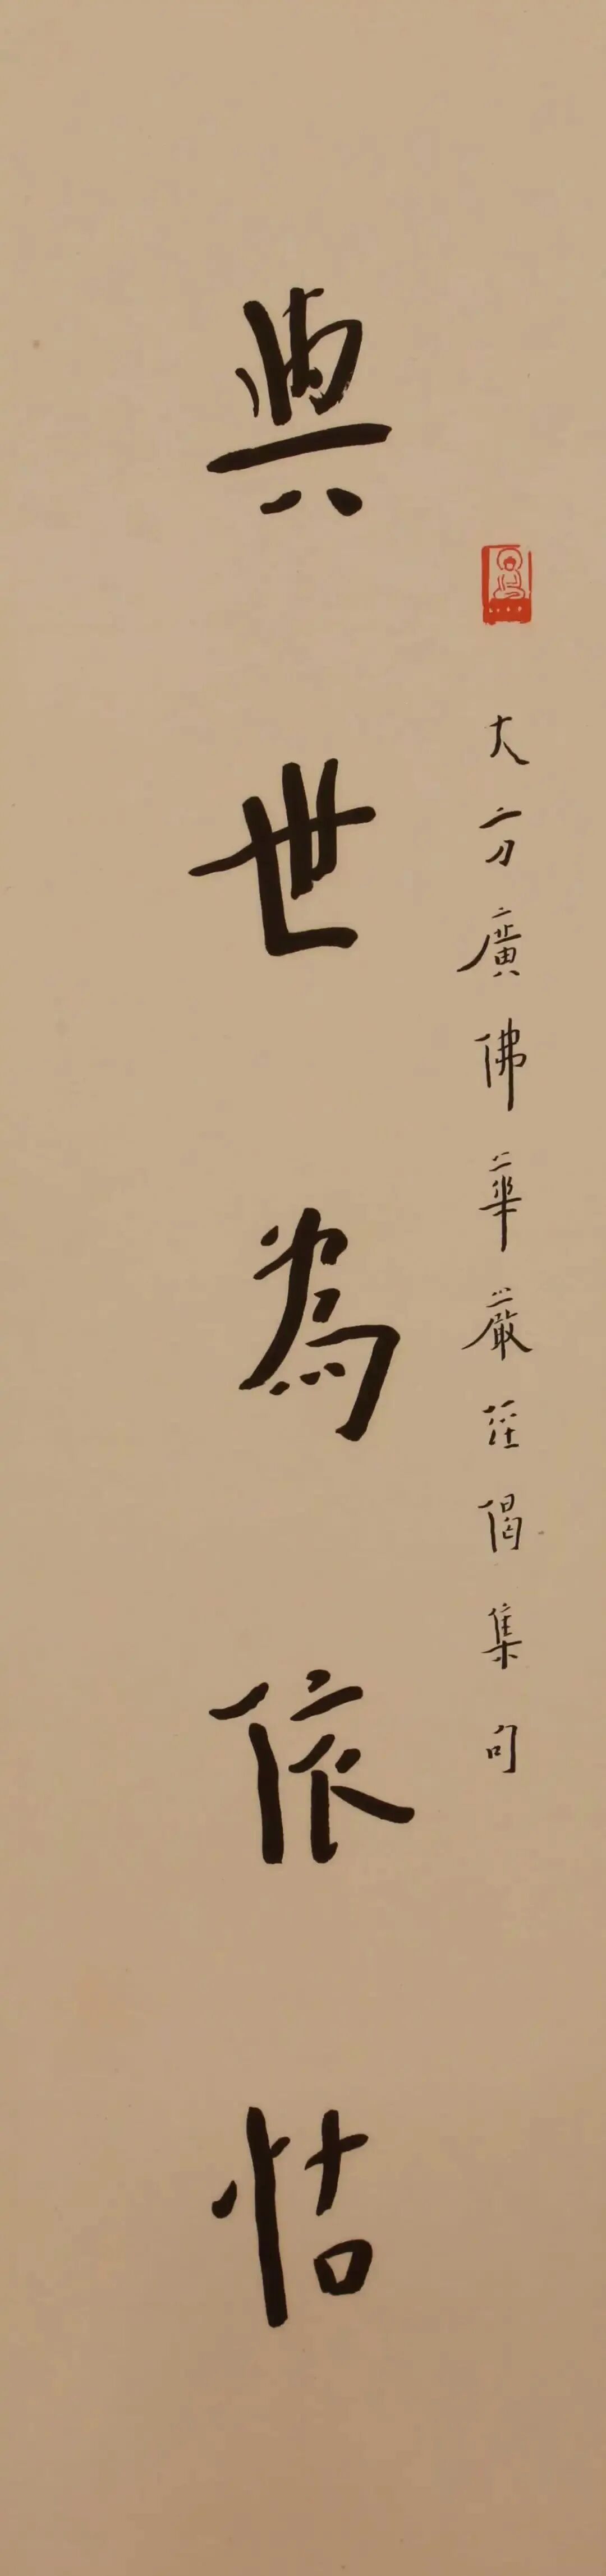 大方廣佛華嚴經偈集句
與世為依怙